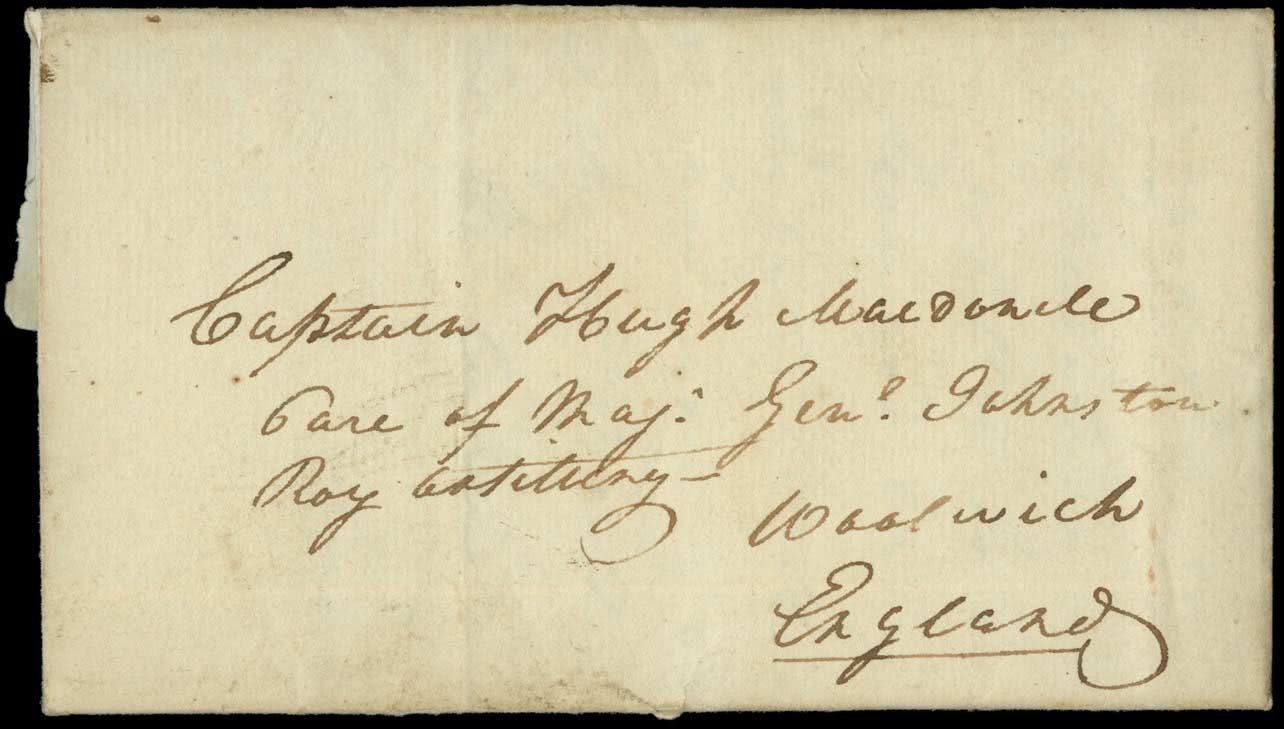 Captain Hugh Macdonell
Care of Majr. Genl. Johnston
Roy Artillery—
Woolwich
England